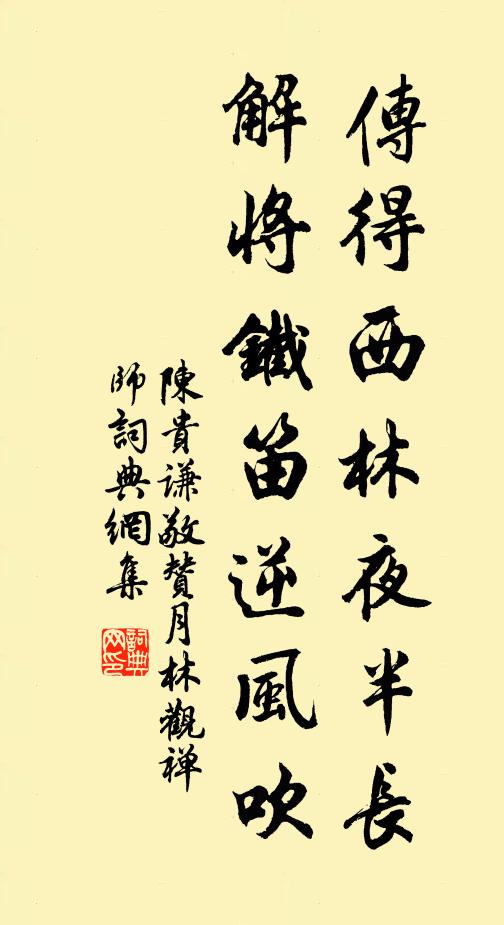 傳得西林夜半長
解將鐵笛逆風吹
陳貴謙敬贊月林觀禅
師詞典網集
詞典
网印